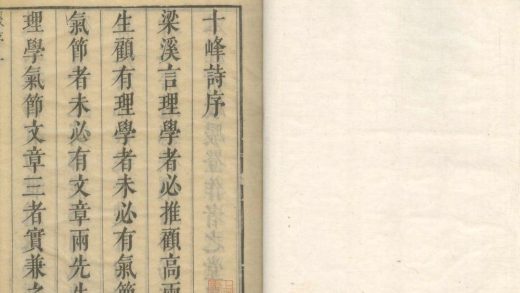 十峰詩序
梁溪言理學者必推顧高兩
生顧有理學者未必有氣節
氣節者未必有文章兩先生
理學氣節文章三者實兼之